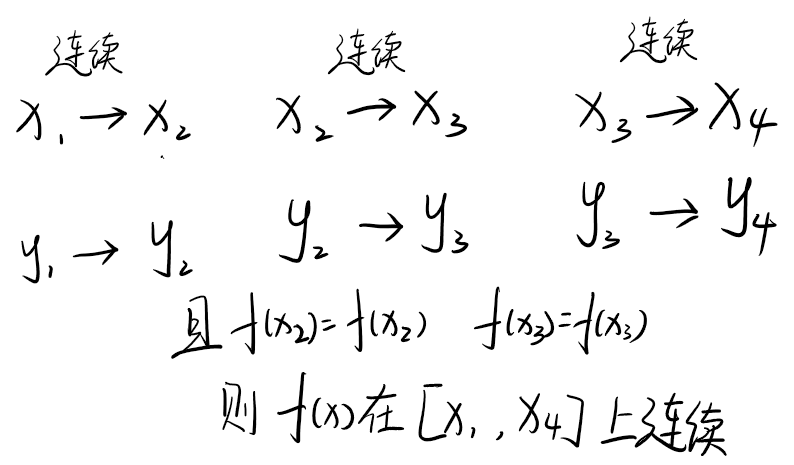 连续 连续 连续
x₁ → x₂ x₂ → x₃ x₃ → x₄
y₁ → y₂ y₂ → y₃ y₃ → y₄
且 f(x₂)=f(x₂) f(x₃)=f(x₃)
则 f(x)在[x₁,x₄]上连续